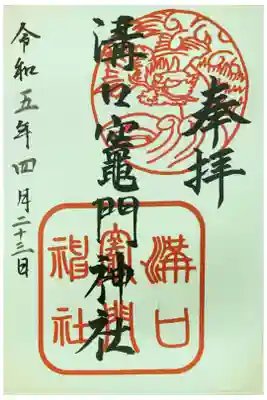 奉拝
溝口竈門神社
令和五年四月二十三日
溝口
竈門
神社